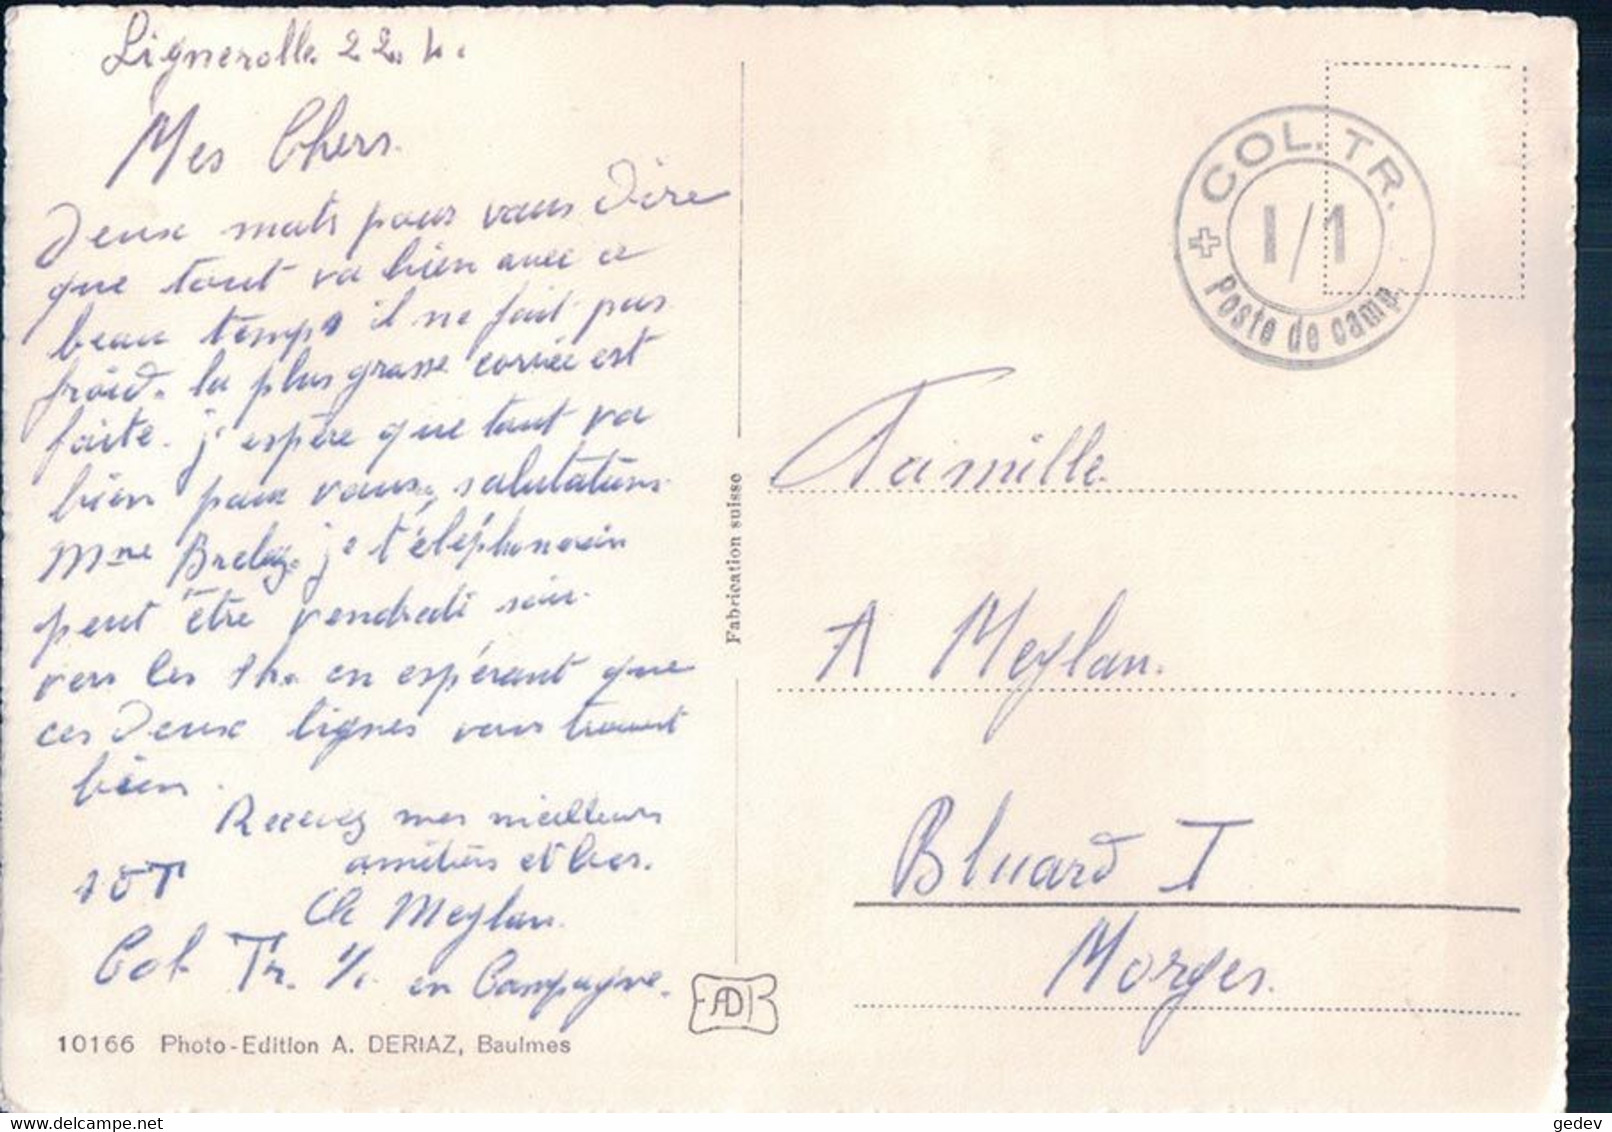 Lignerolle 22. 4.
Mes Chers.
Deux mots pour vous dire
que tout va bien avec ce
beau temps il ne fait pas
froid. la plus grasse corvée est
faite. j'espère que tout va
bien pour vous, salutations
Mme Brelaz. je téléphonerai
peut être vendredi soir
vers les 8h. en espérant que
ces deux lignes vous trouvent
bien.
Recevez mes meilleurs
amitiés et bes.
Ch Meylan.
Col. Tr. 1/1. en Campagne.
10166 Photo-Edition A. DERIAZ, Baulmes
Fabrication suisse
COL. TR.
I/1
Poste de camp.
Famille
A Meylan.
Bluard I
Morges.
gedev